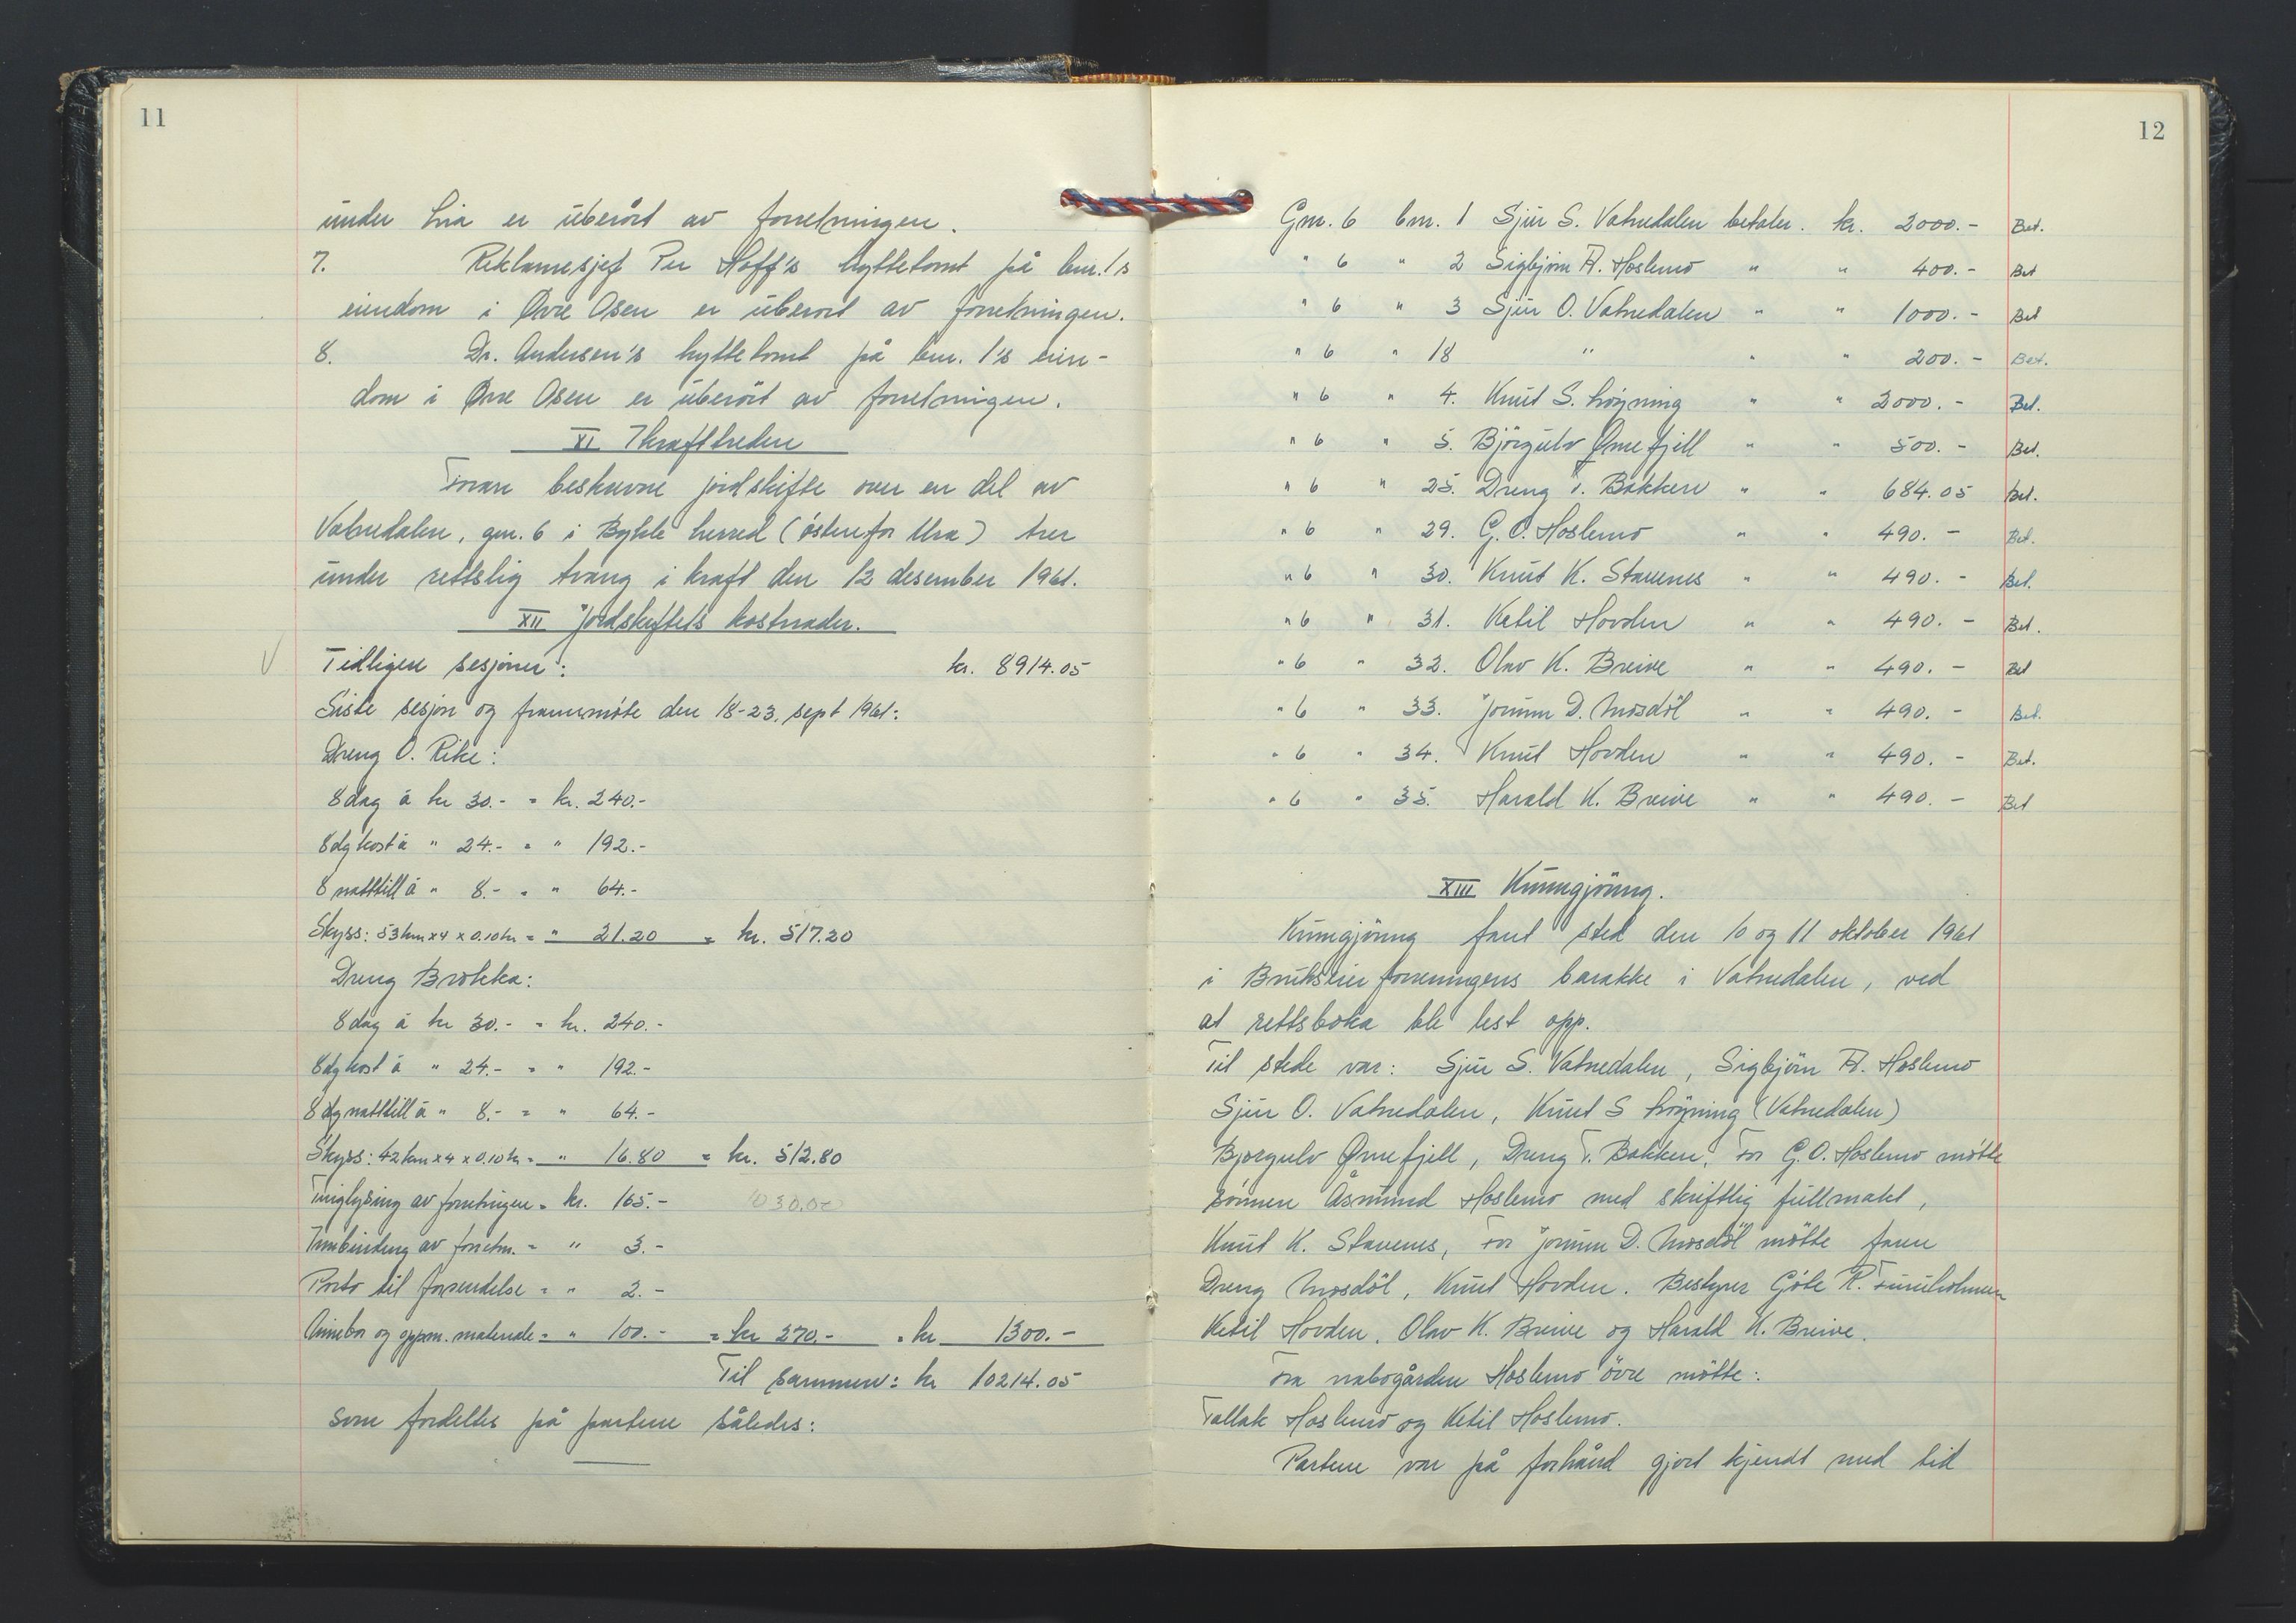 11
under Lia er uberört av forretningen.
7. Reklamesjef Per Hoff's hyttetomt på bnr. 1's
eiendom i Øvre Osen er uberört av forretningen.
8. Dr. Andersen's hyttetomt på bnr. 1's eien-
dom i Øvre Osen er uberört av forretningen.
XI Ikrafttreden
Foran beskrevne jordskifte over en del av
Vatnedalen, gnr. 6 i Bykle herred (östenfor Ura) trer
under rettslig tvang i kraft den 12 desember 1961.
XII Jordskiftets kostnader.
Tidligere sesjoner: kr. 8914.05
Siste sesjon og frammöte den 18-23. sept 1961:
Dreng O. Rike:
8 dag á kr 30.- = kr. 240.-
8 dg kost á " 24.- = " 192.-
8 natttill á " 8.- = " 64.-
Skyss: 53 km x 4 x 0.10 kr = " 21.20 = kr. 517.20
Dreng Brokka:
8 dag á kr 30.- = kr. 240.-
8 dg kost á " 24.- = " 192.-
8 dg natttill á " 8.- = " 64.-
Skyss: 42 km x 4 x 0.10 kr = " 16.80 = kr. 512.80
Tinglysing av forretningen = kr. 165.- 1030.00
Innbinding av forretn. = " 3.-
Porto til forsendelse = " 2.-
og oppm. materiale = " 100.- = kr 270.- = kr 1300.-
Til sammen: kr 10214.05
som fordeltes på partene således:
12
Gnr. 6 bnr. 1 Sjur S. Vatnedalen betaler. kr. 2000.- Bet.
" 6 " 2 Sigbjörn A. Hoslemo " " 400.- Bet
" 6 " 3 Sjur O. Vatnedalen " " 1000.- Bet
" 6 " 18 " " " 200.- Bet.
" 6 " 4. Knut S. Löyning " " 2000.- Bet.
" 6 " 5. Björgulv Ørnefjell " " 500.- Bet.
" 6 " 25. Dreng T. Bakken " " 684.05 bet.
" 6 " 29. G. O. Hoslemo " " 490.- Bet.
" 6 " 30. Knut K. Stavenes " " 490.- Bet.
" 6 " 31. Ketil Hovden " " 490.- Bet.
" 6 " 32. Olav K. Breive " " 490.- Bet
" 6 " 33. Jorunn D. Mosdöl " " 490.- Bet.
" 6 " 34. Knut Hovden " " 490.- Bet.
" 6 " 35. Harald K. Breive " " 490.- Bet
XIII Kunngjöring.
Kunngjöring fant sted den 10 og 11 oktober 1961
i Brukseierforeningens barakke i Vatnedalen, ved
at rettsboka ble lest opp.
Til stede var: Sjur S. Vatnedalen, Sigbjörn A. Hoslemo
Sjur O. Vatnedalen, Knut S Löyning (Vatnedalen)
Bjorgulv Ørnefjell, Dreng T. Bakken, For G. O. Hoslemo mötte
sönnen Åsmund Hoslemo med skriftlig fullmakt,
Knut K. Stavenes, For Jorunn D. Mosdöl mötte faren
Dreng Mosdöl, Knut Hovden. Bestyrer Göte R. Furuholmen
Ketil Hovden, Olav K. Breive og Harald K. Breive.
Fra nabogården Hoslemo övre mötte:
Tallak Hoslemo og Ketil Hoslemo.
Partene var på forhånd gjort kjendt med tid